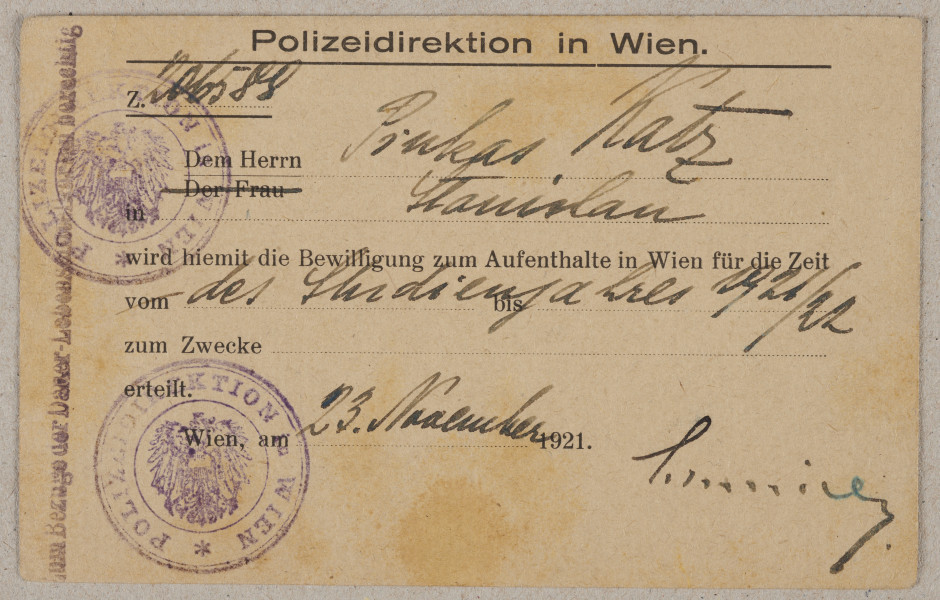 Polizeidirektion in Wien.
Z. 206588
Dem Herrn Pinkas Katz
Der Frau
in Stanislau
wird hiemit die Bewilligung zum Aufenthalte in Wien für die Zeit
vom des Studienjahres bis 1921/22
zum Zwecke
erteilt.
Wien, am 23. November 1921.
POLIZEIDIREKTION WIEN
POLIZEIDIREKTION IN WIEN
zum Bezuge der Dauer-Lebens